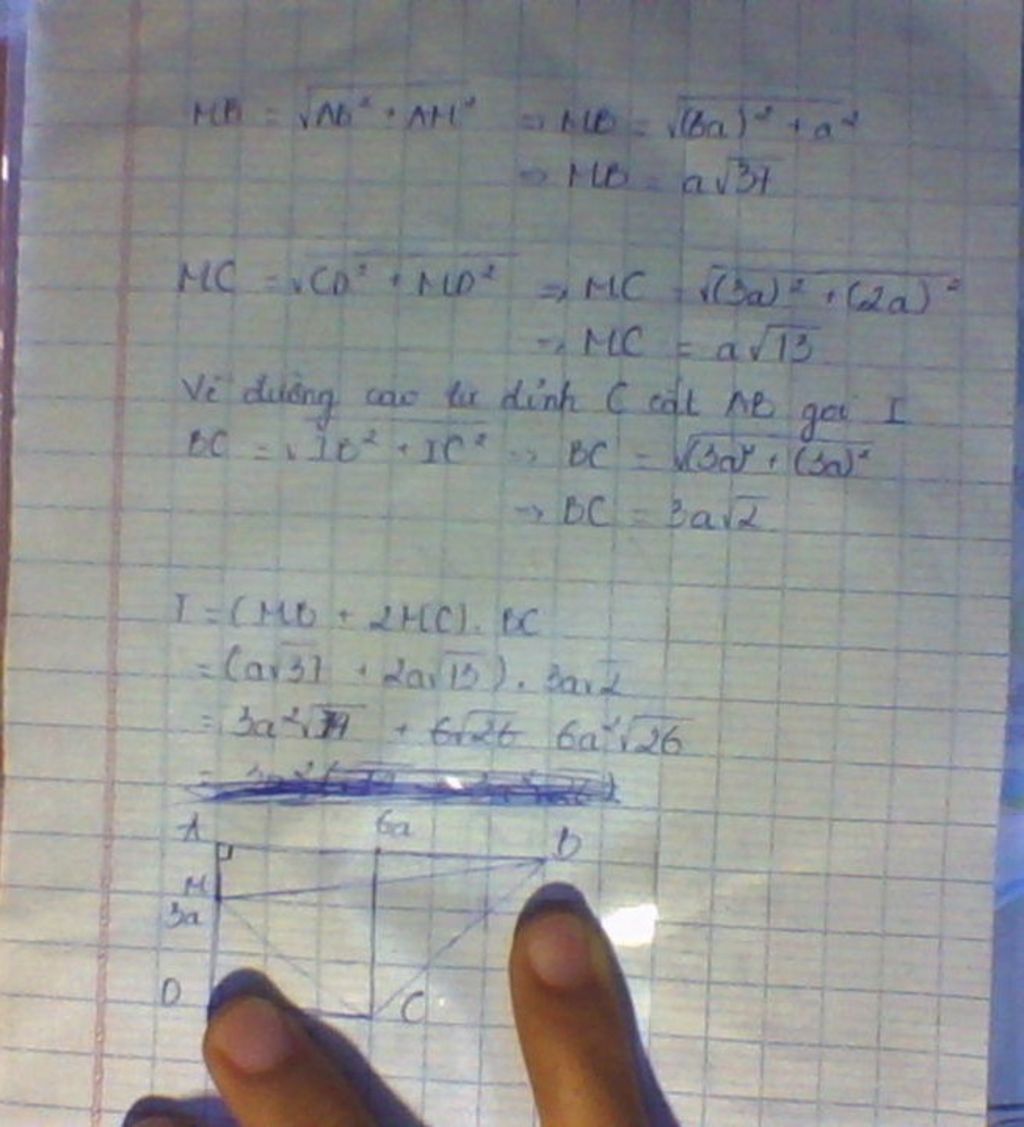 MB = √AB² + AM² ⇒ MB = √(6a)² + a²
⇒ MB = a√37
MC = √CD² + MD² ⇒ MC = √(3a)² + (2a)²
⇒ MC = a√13
Vẽ đường cao từ đỉnh C cắt AB gọi I
BC = √IB² + IC² ⇒ BC = √(3a)² + (3a)²
⇒ BC = 3a√2
T = (MB + 2MC). BC
= (a√37 + 2a√13). 3a√2
= 3a²√74 + 6√26 6a²√26
A 6a B
M
3a
D C